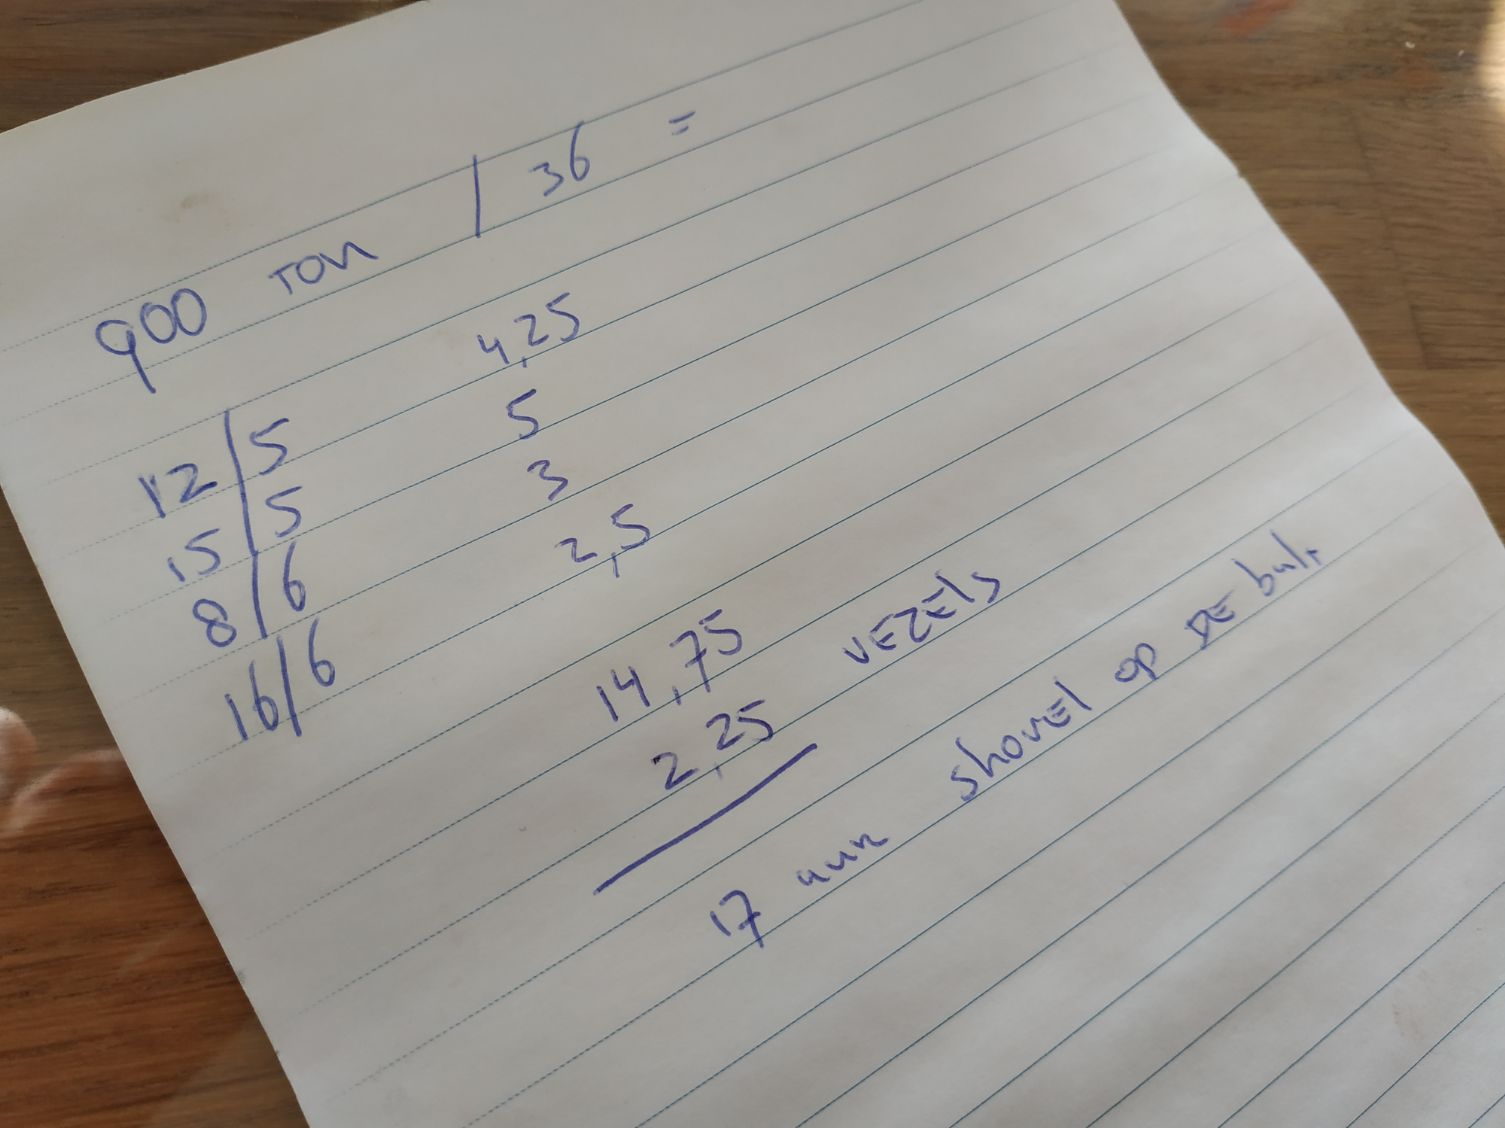 900 ton / 36 =
12/5 4,25
15/5 5
8/6 3
16/6 2,5
14,75
2,25 vezels
17 uur shovel op de bult